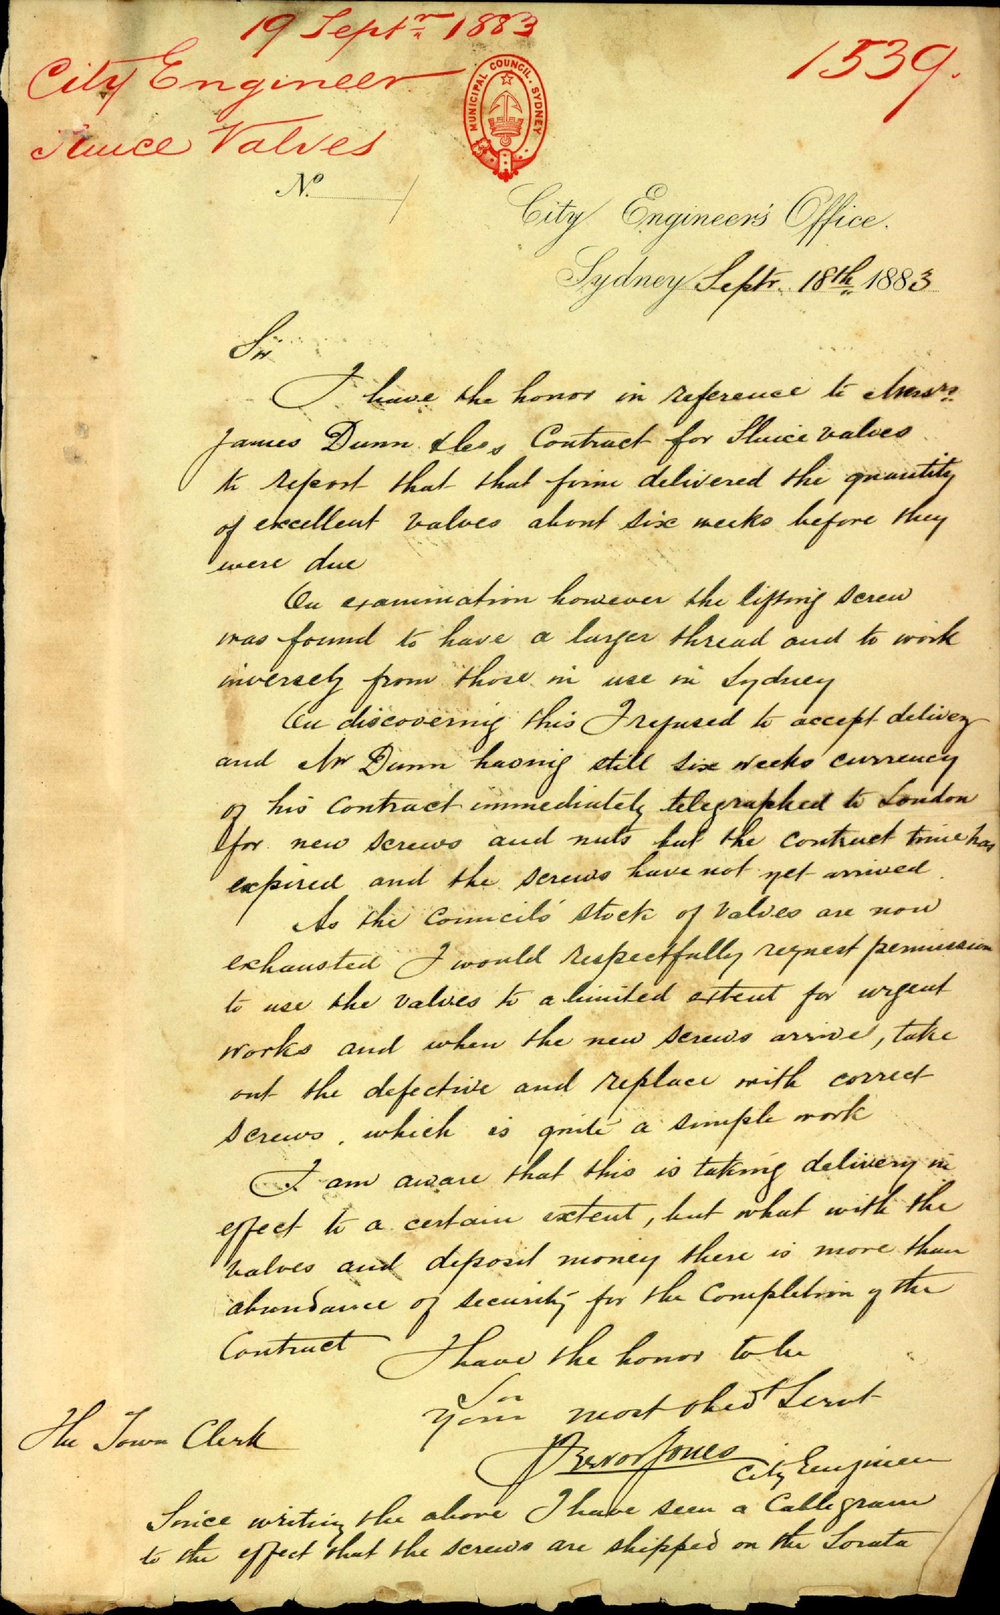 19 Septr. 1883
City Engineer
Sluice Valves
1539.
MUNICIPAL COUNCIL. SYDNEY
No.
City Engineer's Office.
Sydney Septr. 18th 1883
Sir
I have the honor in reference to Messrs.
James Dunn & Co's Contract for Sluice valves
to report that that firm delivered the quantity
of excellent valves about six weeks before they
were due
On examination however the lifting screw
was found to have a larger thread and to work
inversely from those in use in Sydney
On discovering this I refused to accept delivery
and Mr Dunn having still six weeks currency
of his contract immediately telegraphed to London
for new screws and nuts but the contract time has
expired and the screws have not yet arrived.
As the Councils' stock of valves are now
exhausted I would respectfully request permission
to use the valves to a limited extent for urgent
works and when the new screws arrive, take
out the defective and replace with correct
screws, which is quite a simple work
I am aware that this is taking delivery in
effect to a certain extent, but what with the
valves and deposit money there is more than
abundance of security for the completion of the
Contract
I have the honor to be
Sir
Your most obed Servt
Trevor Jones
City Engineer
The Town Clerk
Since writing the above I have seen a Cablegram
to the effect that the screws are shipped on the Sorata